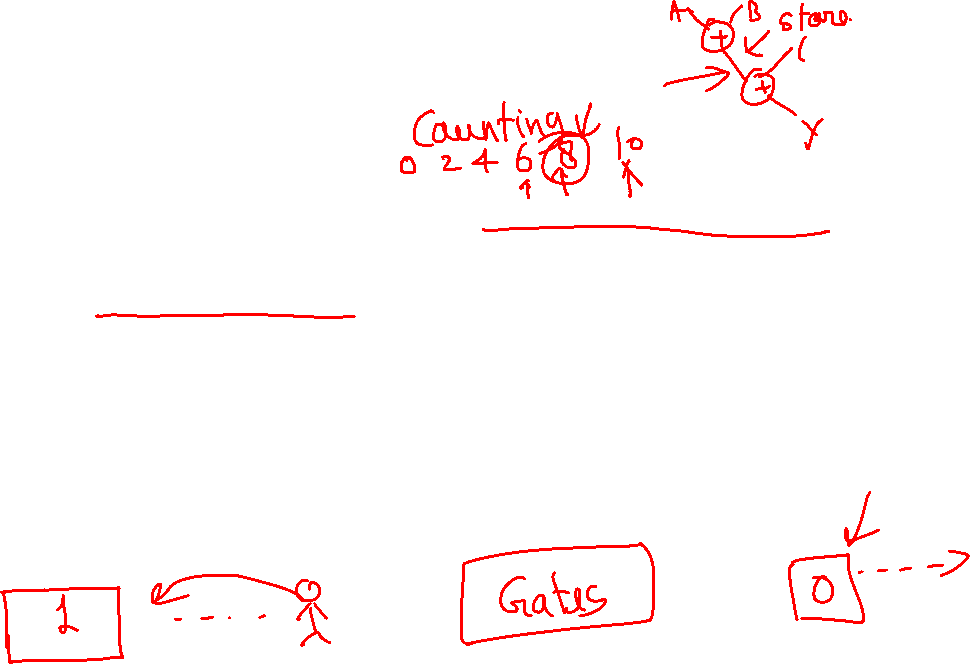 A B store
+ C
+
Y
Counting
0 2 4 6 8 10
1 Gates 0